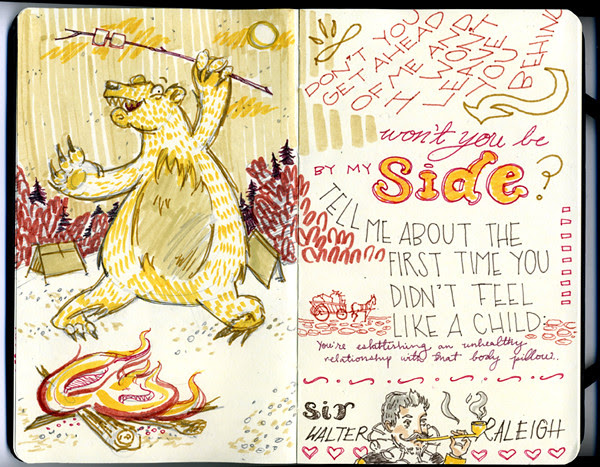 DON'T YOU
GET AHEAD
OF ME AND
I WON'T
LEAVE
YOU
BEHIND
won't you be
BY MY Side?
TELL ME ABOUT THE
FIRST TIME YOU
DIDN'T FEEL
LIKE A CHILD.
You're establishing an unhealthy
relationship with that body pillow..
Sir
WALTER RALEIGH